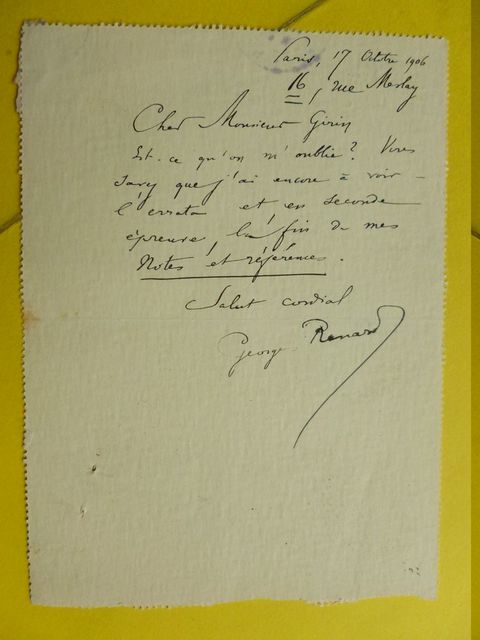 Paris, 17 Octobre 1906
16, rue Meslay
Cher Monsieur Girin
Est-ce qu'on m'oublie? Vous
savez que j'ai encore à voir
l'errata et en seconde
épreuve, la fin de mes
Notes et références.
Salut cordial
Georges Renard